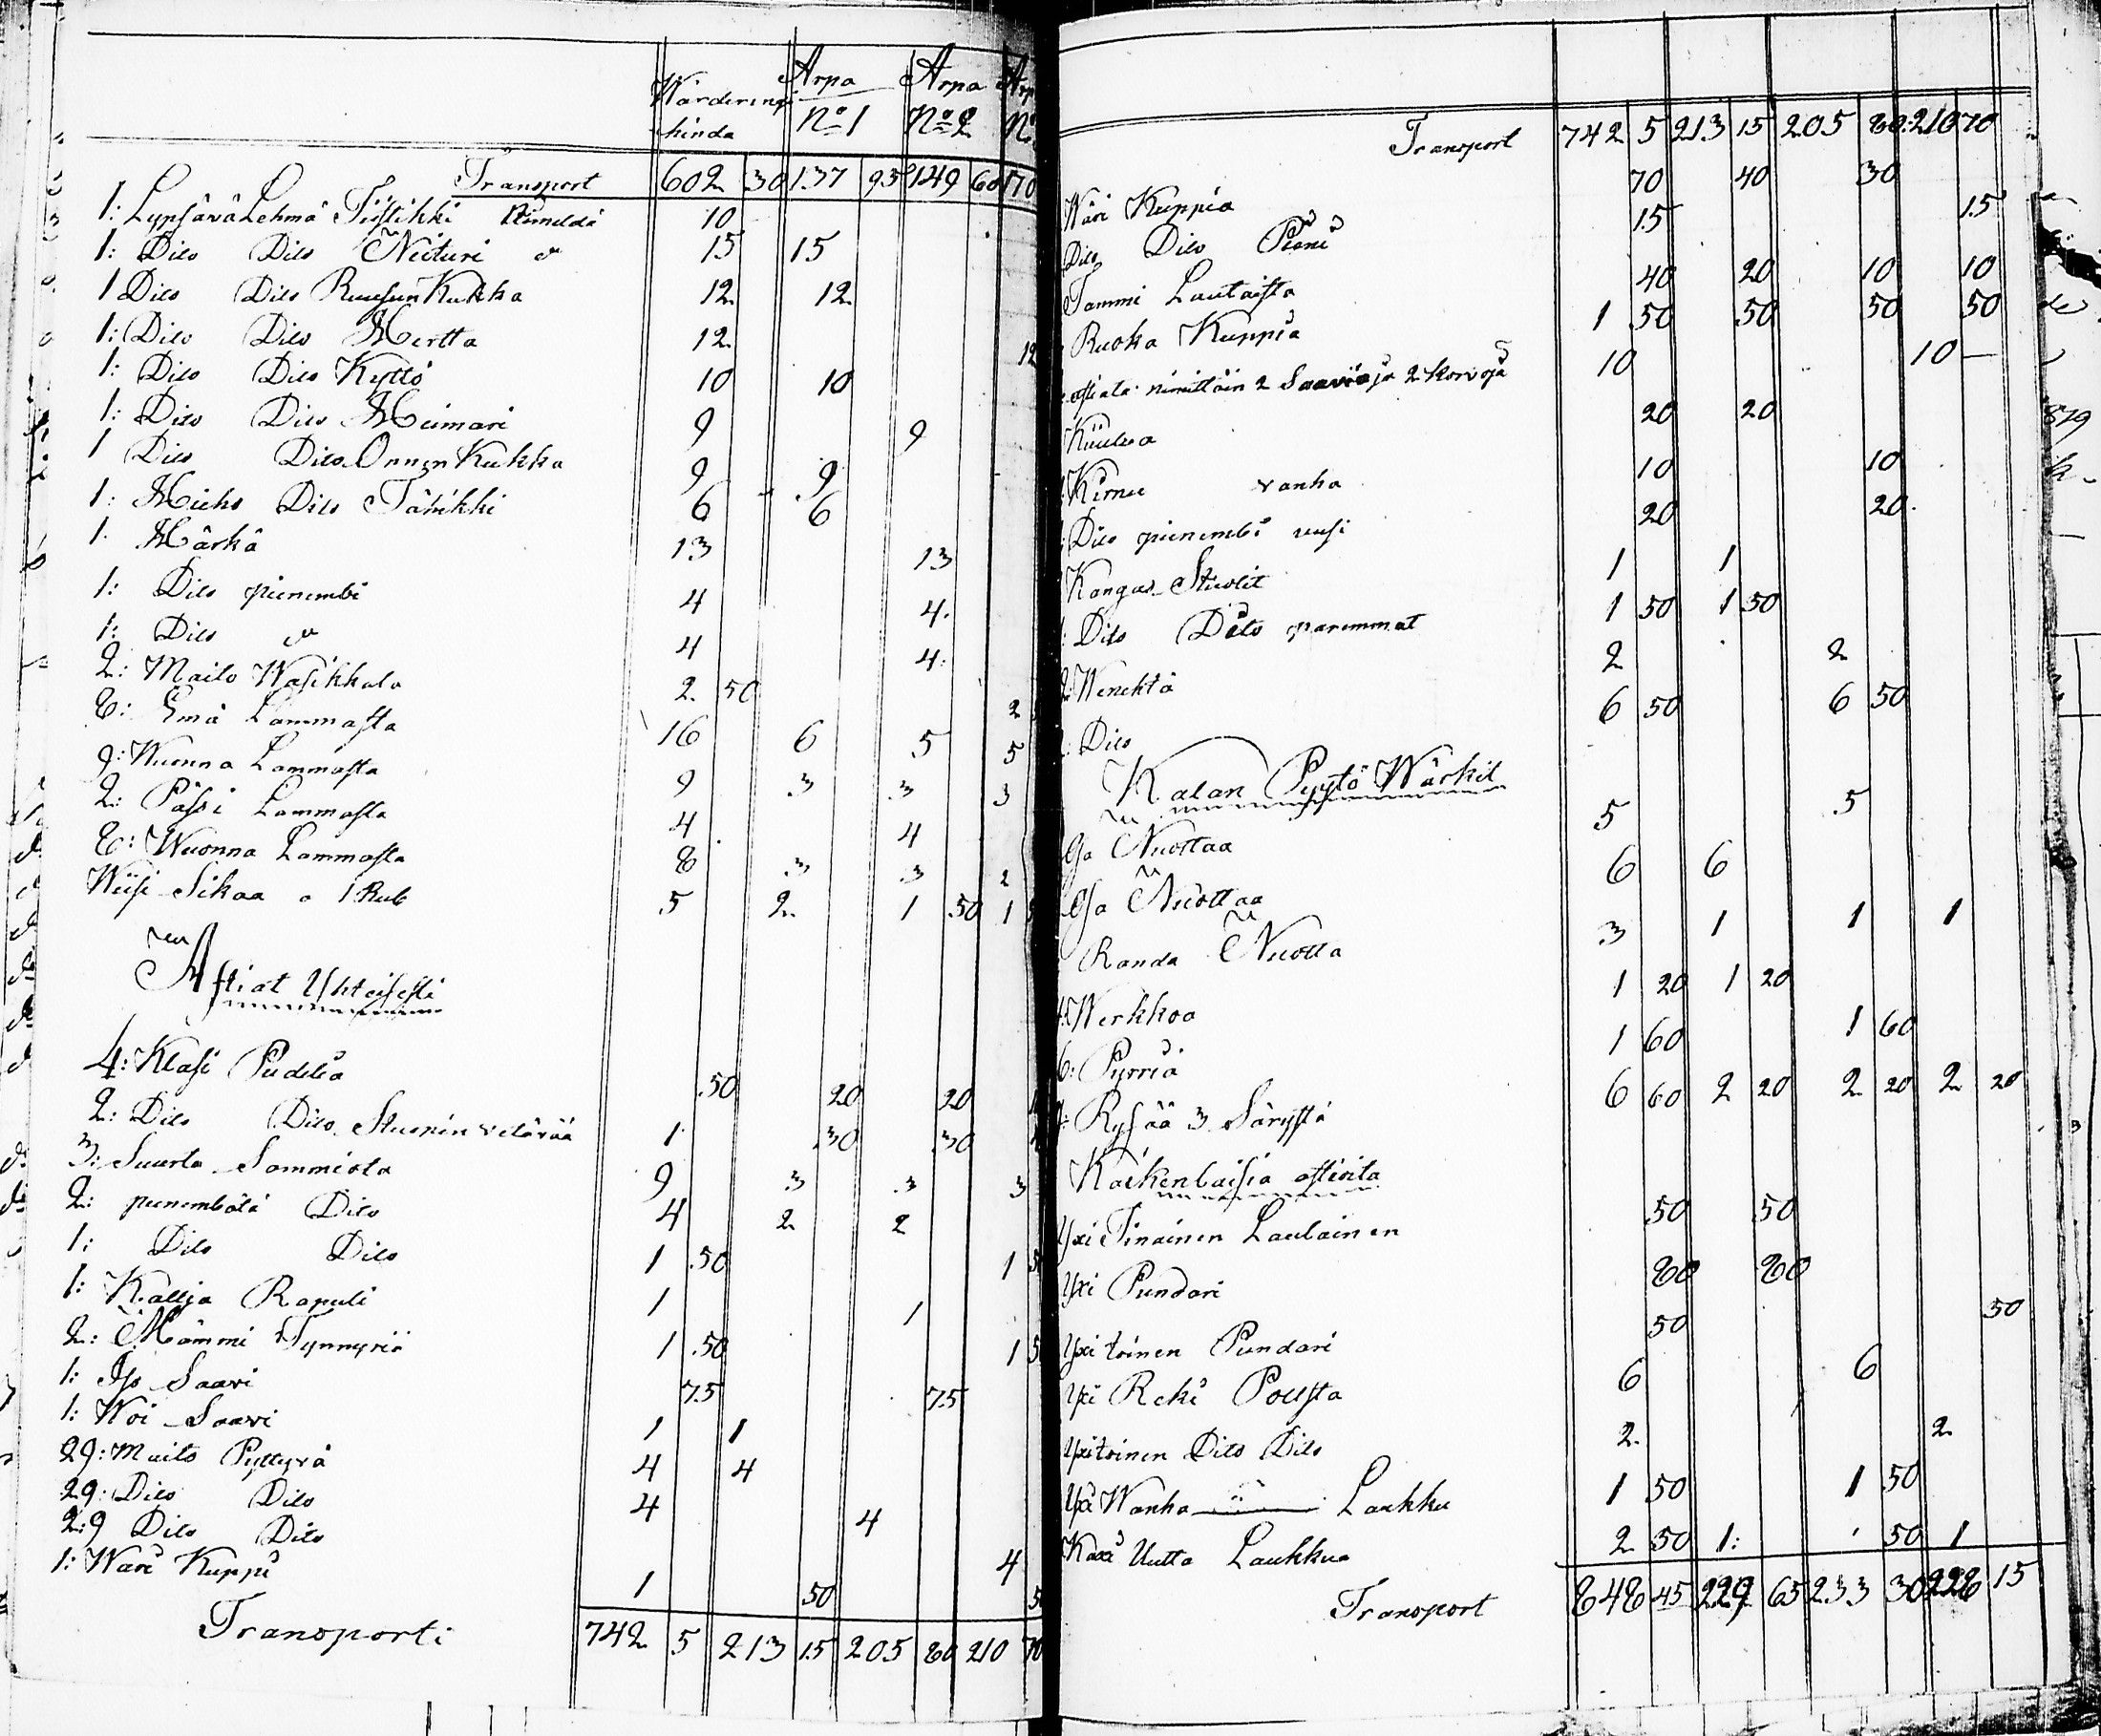 Wärderingi hinda Arpa No 1 Arpa No 2 Arp No
Transport 602 30 137 95 149 60 170
1: Lypsävä Lehmä Tiistikki nimeldä 10
1: Dito Dito Neituri 15 15
1 Dito Dito Ruusun Kukka 12 12
1: Dito Dito Mertta 12 12
1: Dito Dito Kyttö 10 10
1: Dito Dito Meimari 9 9
1 Dito Dito Onnen Kukka 9 9
1: Dito Tähikki 6 6
1. Härkä 13 13
1: Dito pienembi 4 4.
1: Dito 4 4.
2: Maito Wasikkata 2 50 2
8: Emä Lammasta 16 6 5 5
9: Wuonna Lammasta 9 3 3 3
2: Pässi Lammasta 4 4
8: Wuonna Lammasta 8 3 3 2
Wiisi Sikaa a 1 Rub 5 2 1 50 1
Astiat Yhteisesti
4: Klasi Pudelia 50 20 20
2: Dito Dito Stuopin vetävää 1 30 30
3: Suurta Sammiota 9 3 3 3
2: pienembätä Dito 4 2 2
1: Dito Dito 1 50 1 5
1: Kallja Rapuli 1 1
2: Mämmi Tynnyriä 1 50 1 5
1: Iso Saavi 75 75
1: Woi Saavi 1 1
29: Maito Pyttyyä 4 4
29: Dito Dito 4 4
29 Dito Dito 4
1: Wari Kuppi 1 50 5
Transporti 742 5 213 15 205 80 210 70
Transport 742 5 213 15 205 80 210 70
Wari Kuppia 70 40 30
Dito Dito Pieni 15 15
Tammi Lautaista 40 20 10 10
Ruoka Kuppia 1 50 50 50 50
astiata nimittäin 2 Saavia ja 2 Korvoja 10 10 —
20 20
Kirnu vanha 10 10
Dito pienembi uusi 20 20
Kangas Stuolit 1 1
1: Dito Dito paremmat 1 50 1 50
2: Wenettä 2 2
Dito 6 50 6 50
Kalan Pyytö Wärkit
Osa Nuottaa 5 5
Osa Nuottaa 6 6
Randa Nuotta 3 1 1 1
4: Werkkoa 1 20 1 20
6: Pyrriä 1 60 1 60
Rysää 3 Särystä 6 60 2 20 2 20 2 20
Kaikenlaisia astioita
Yxi Tinainen Lautainen 50 50
Yxi Pundari 80 80
Yxi toinen Pundari 50 50
Yxi Reki Pousta 6 6
Yxi toinen Dito Dito 2 2
Yxi Wanha Laukku 1 50 1 50
Kaxi Uutta Laukkua 2 50 1: 50 1
Transport 848 45 229 65 233 30 228 15